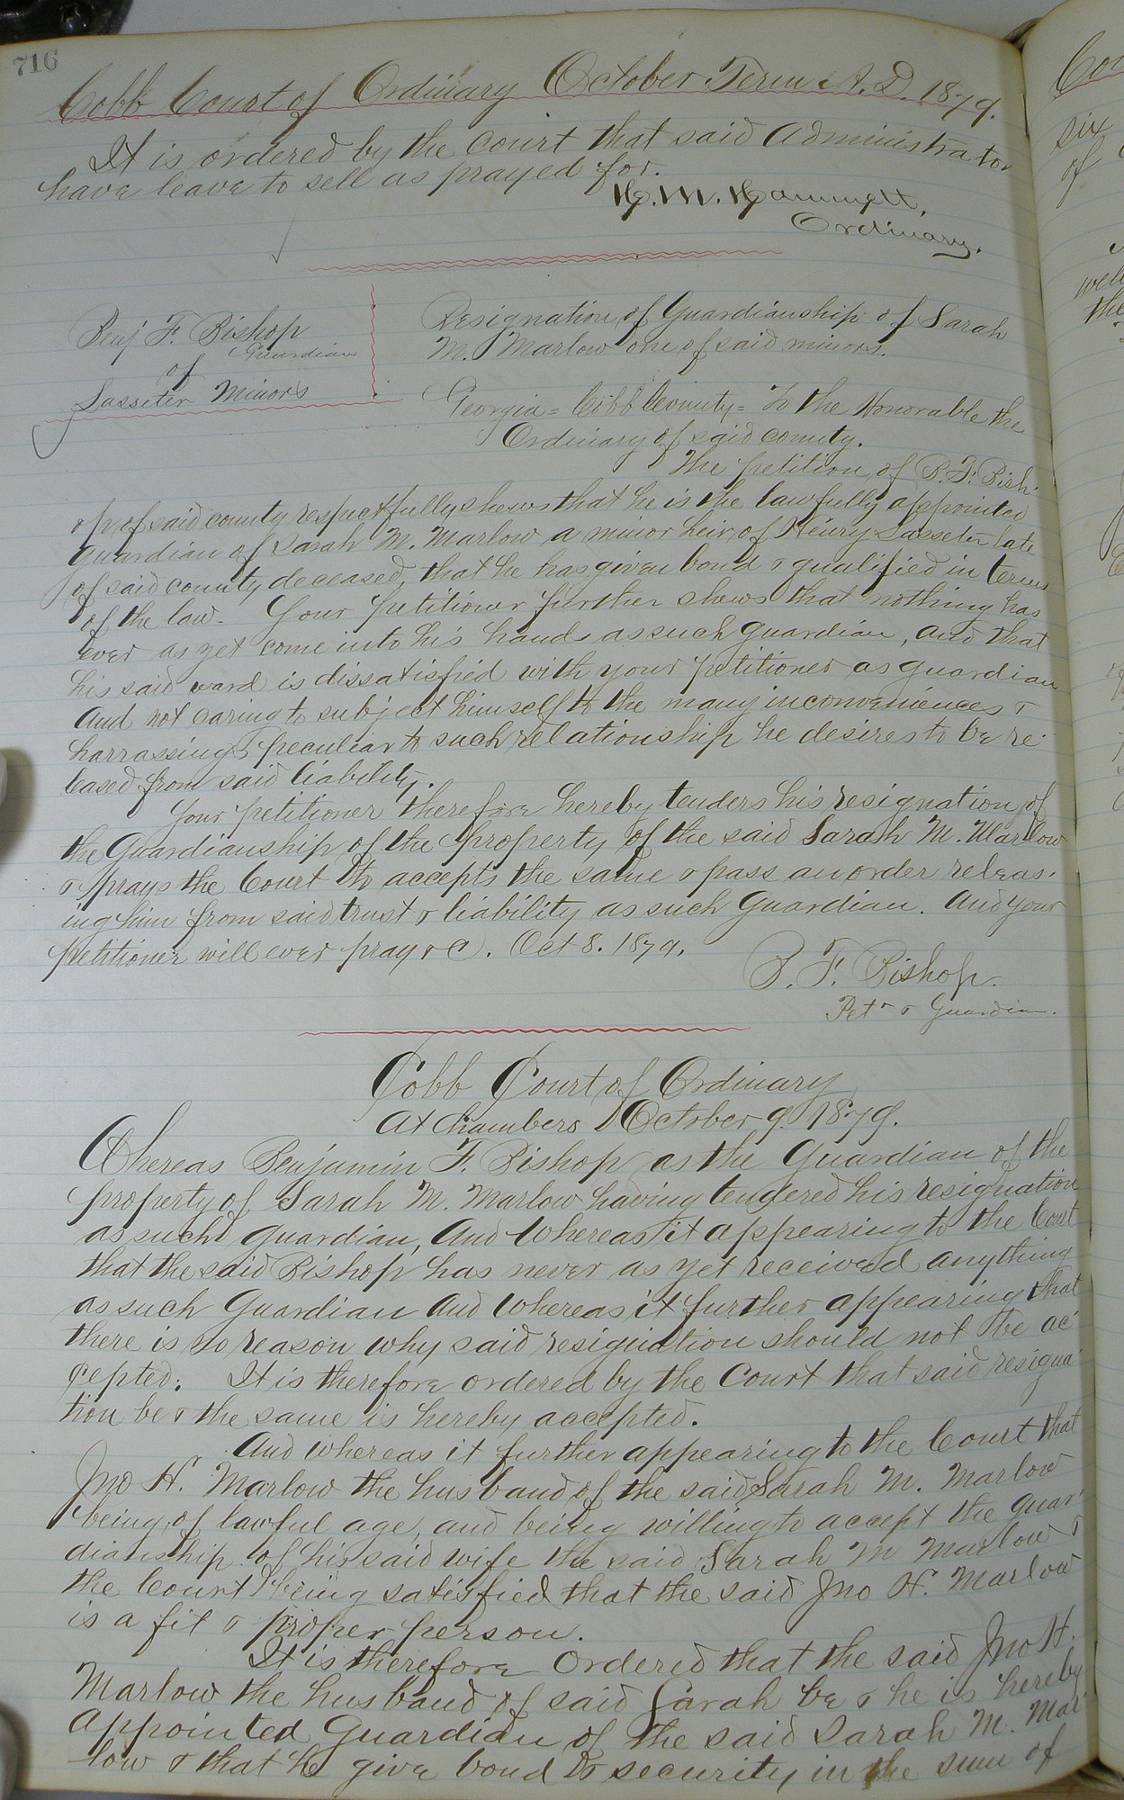 716
Cobb Court of Ordinary October Term A.D. 1879.
It is ordered by the court that said Administrator
have leave to sell as prayed for.
H. M. Hammett,
Ordinary.
Benj F. Bishop
Guardian
of
Sasseter Minors
Resignation of Guardianship of Sarah
M. Marlow one of said minors.
Georgia = Cobb County = To the Honorable the
Ordinary of said county.
The petition of B. F. Bish-
op of said county respectfully shews that he is the lawfully appointed
guardian of Sarah M. Marlow a minor heir of Henry Sasseter late
of said county deceased, that he has given bond & qualified in terms
of the law. Your petitioner further shews that nothing has
ever as yet come into his hands as such guardian, and that
his said ward is dissatisfied with your petitioner as guardian
And not caring to subject himself to the many inconveniences &
harrassings peculiar to such relationship he desires to be re-
leased from said liability.
Your petitioner therefore hereby tenders his resignation of
the Guardianship of the property of the said Sarah M. Marlow
& prays the Court to accepts the same & pass an order releas-
ing him from said trust & liability as such Guardian. And your
petitioner will ever pray &C. Oct 8. 1879.
B. F. Bishop.
Petr & Guardian.
Cobb Court of Ordinary
At Chambers October 9 1879.
Whereas Benjamin F. Bishop as the Guardian of the
property of Sarah M. Marlow having tendered his resignation
as such guardian, And Whereas it appearing to the Court
that the said Bishop has never as yet received anything
as such Guardian And Whereas it further appearing that
there is no reason why said resignation should not be ac-
cepted: It is therefore ordered by the Court that said resigna-
tion be & the same is hereby accepted.
And whereas it further appearing to the Court that
Jno H. Marlow the husband of the said Sarah M. Marlow
being of lawful age, and being willing to accept the guar-
dianship of his said wife the said Sarah M Marlow &
the Court being satisfied that the said Jno H. Marlow
is a fit & proper person.
It is therefore Ordered that the said Jno H.
Marlow the husband of said Sarah be & he is hereby
appointed Guardian of the said Sarah M. Mar-
low & that he give bond & security in the sum of
six
of
the